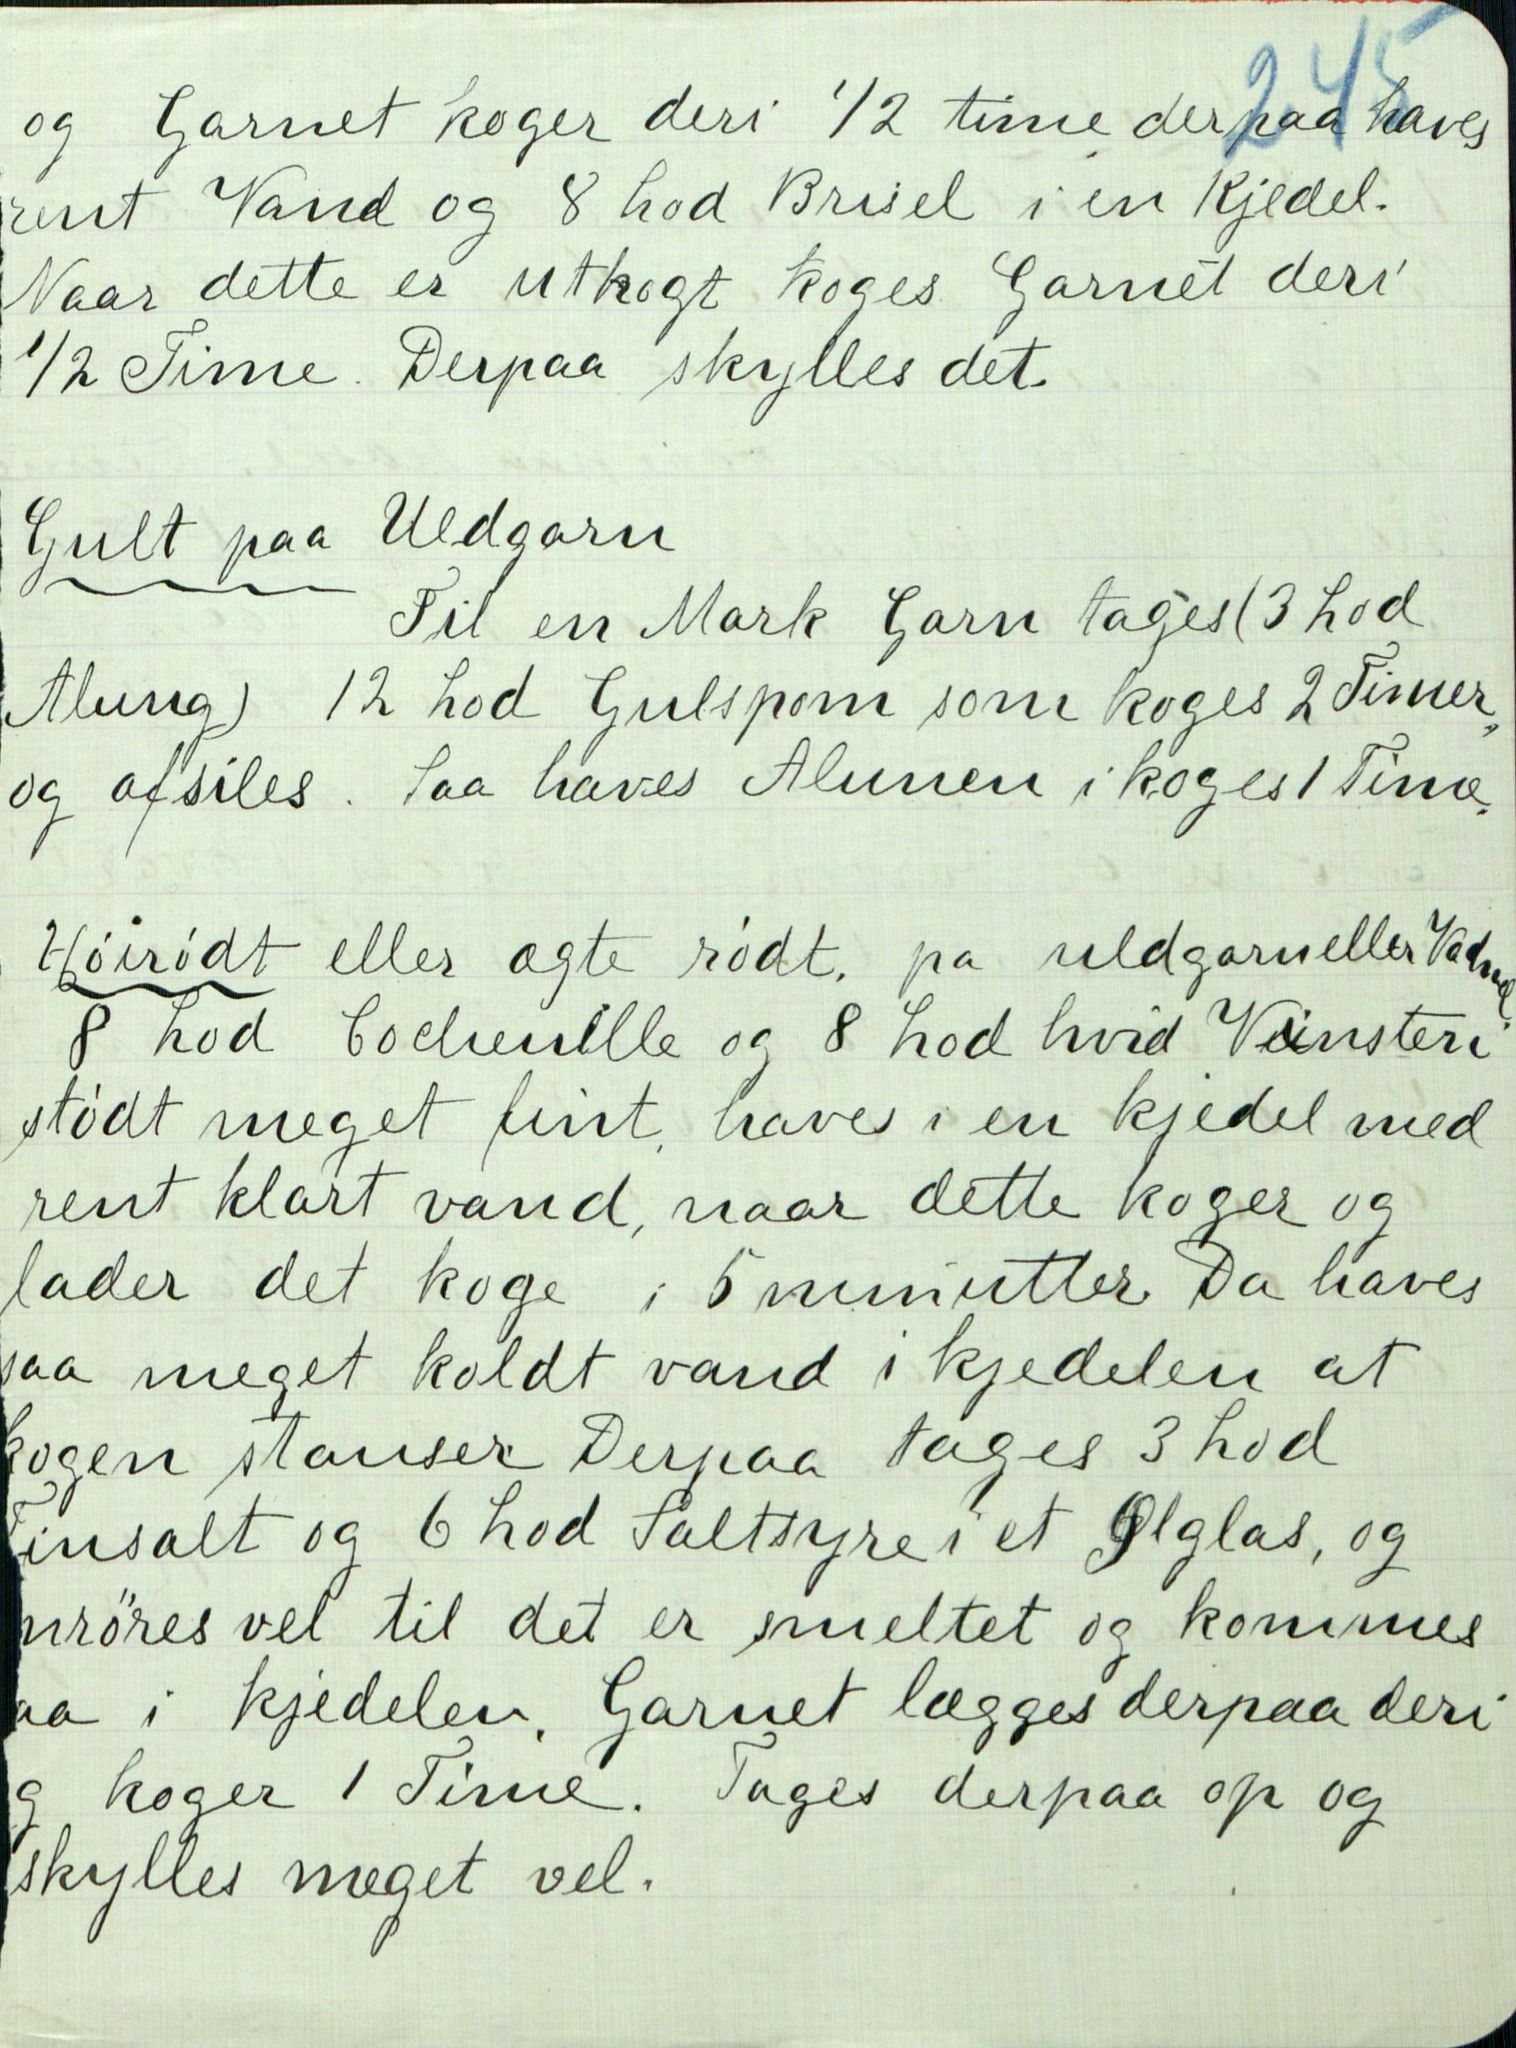 245
og Garnet koger deri 1/2 time derpaa haves
rent Vand og 8 Lod Brisel i en Kjedel.
Naar dette er utkogt koges Garnet deri
1/2 Time. Derpaa skylles det.
Gult paa Uldgarn
Til en Mark Garn tages (3 Lod
Alung) 12 Lod Gulspom som koges 2 Timer,
og afsiles. Saa haves Alunen i koges 1 Time.
Høirødt eller ægte rødt, pa uldgarn eller Vadmel.
8 Lod Cochenille og 8 Lod hvid Vinsteri
stødt meget fint, haves i en kjedel med
rent klart vand, naar dette koger og
lader det koge i 5 minutter Da haves
saa meget koldt vand i kjedelen at
kogen stanser Derpaa tages 3 Lod
Tinsalt og 6 Lod Saltsyre i et Ølglas, og
mröres vel til det er smeltet og kommes
aa i kjedelen. Garnet lægges derpaa deri
g koger 1 Time. Tages derpaa op og
skylles meget vel.